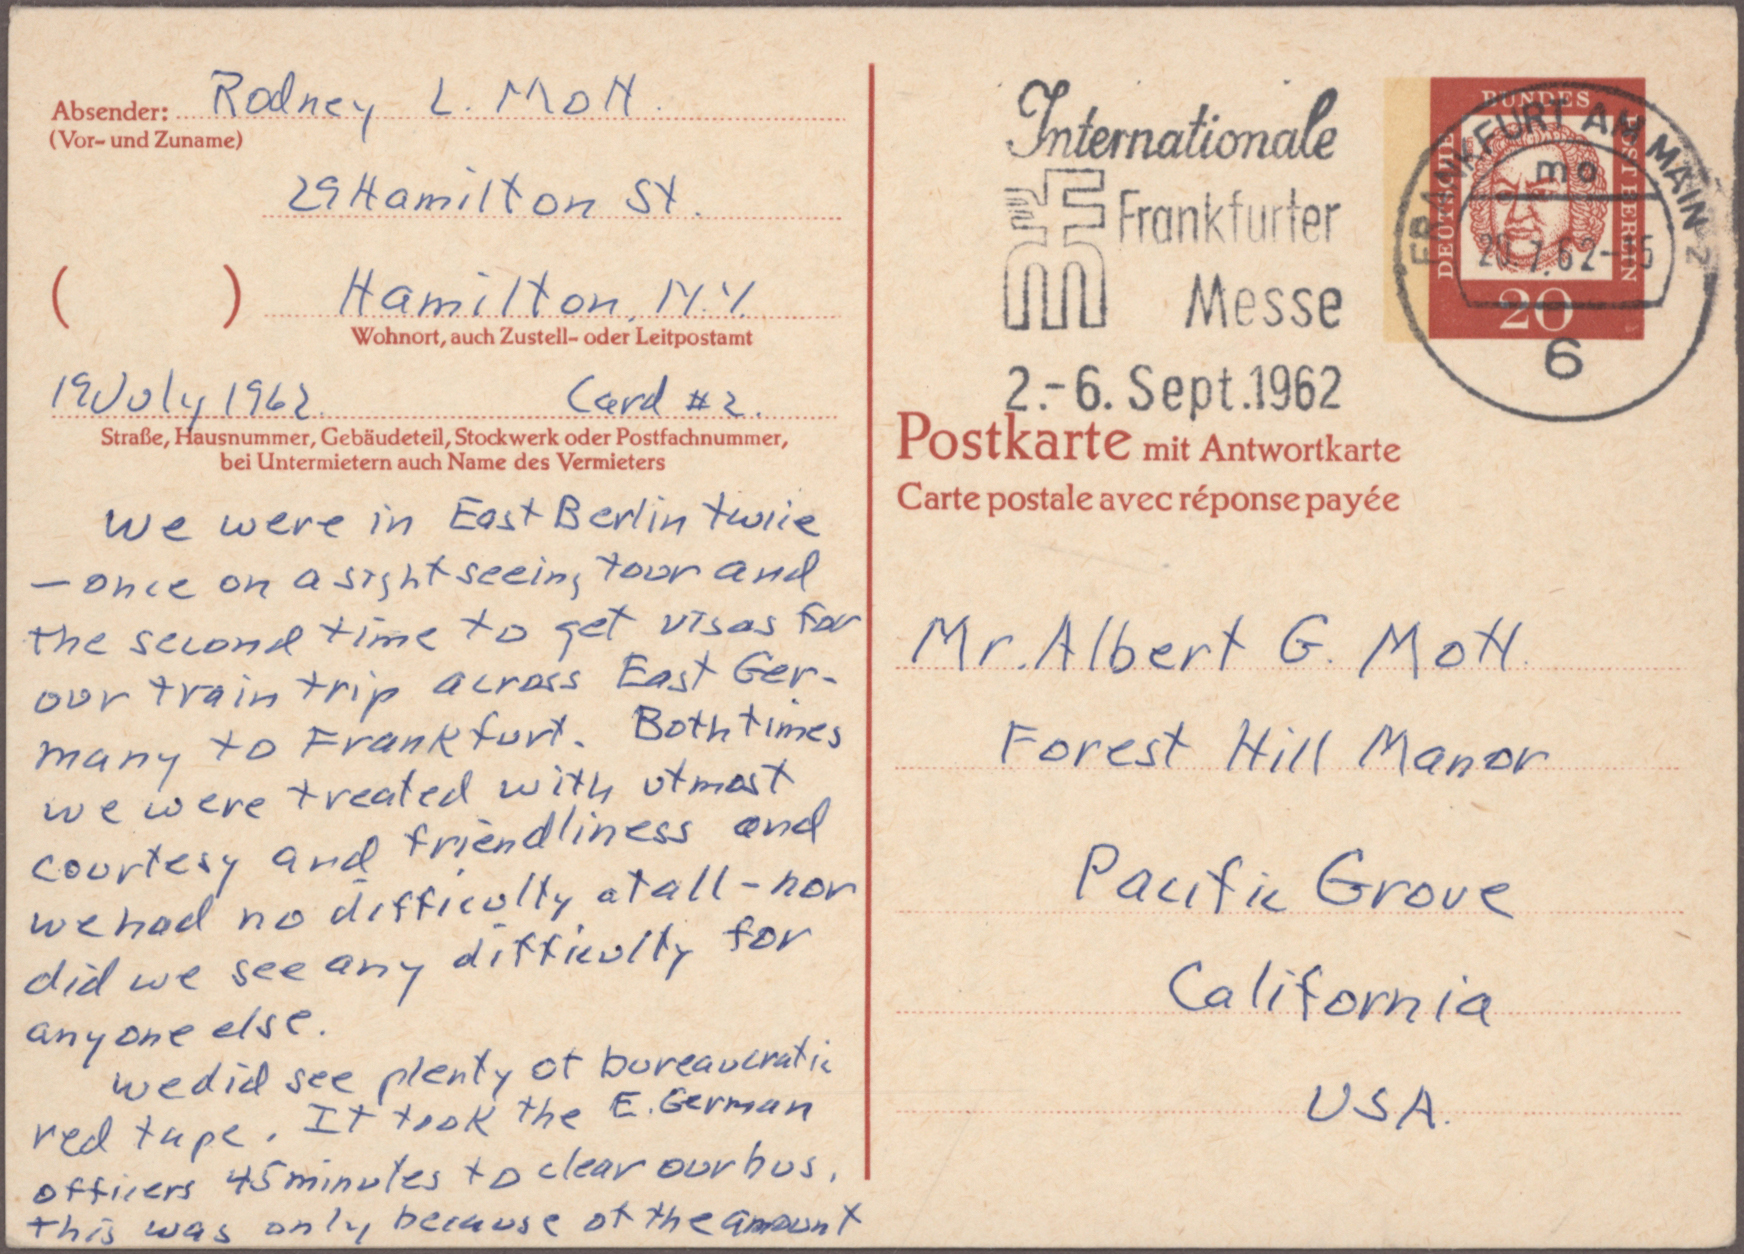 Absender: Rodney L. Mott.
(Vor- und Zuname)
29 Hamilton St.
( ) Hamilton, N.Y.
Wohnort, auch Zustell- oder Leitpostamt
19 July 1962. Card #2.
Straße, Hausnummer, Gebäudeteil, Stockwerk oder Postfachnummer,
bei Untermietern auch Name des Vermieters
We were in East Berlin twice
— once on a sightseeing tour and
the second time to get visas for
our train trip across East Ger-
many to Frankfurt. Both times
we were treated with utmost
courtesy and friendliness and
we had no difficulty at all - nor
did we see any difficulty for
anyone else.
We did see plenty of bureaucratic
red tape. It took the E. German
officers 45 minutes to clear our bus.
This was only because of the amount
Internationale
Frankfurter
Messe
2.-6. Sept.1962
DEUTSCHE BUNDESPOST BERLIN
20
FRANKFURT AM MAIN 2
mo
20.7.62-15
6
Postkarte mit Antwortkarte
Carte postale avec réponse payée
Mr. Albert G. Mott.
Forest Hill Manor
Pacific Grove
California
USA.